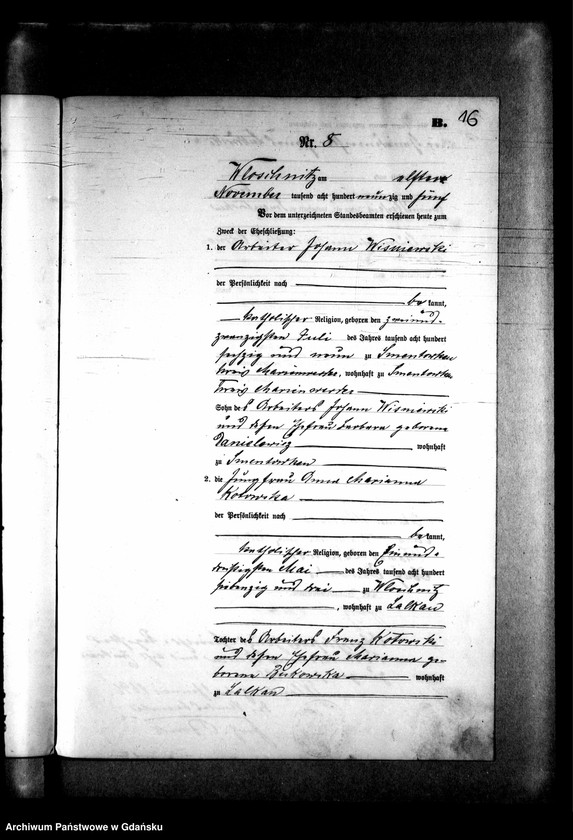 B. 16
Nr. 8
Wloschnitz am elften
November tausend acht hundert neunzig und fünf
Vor dem unterzeichneten Standesbeamten erschienen heute zum
Zweck der Eheschließung:
1. der Arbeiter Johann Wisniewski
der Persönlichkeit nach
bekannt,
katholischer Religion, geboren den zweiund-
zwanzigsten Juli des Jahres tausend acht hundert
sechzig und neun zu Smentowken
Kreis Marienwerder, wohnhaft zu Smentowken
Kreis Marienwerder
Sohn des Arbeiters Johann Wisniewski
und dessen Ehefrau Barbara geborene
Danielewicz wohnhaft
zu Smentowken
2. die Jungfrau Anna Marianna
Kotowska
der Persönlichkeit nach
bekannt,
katholischer Religion, geboren den einund-
dreißigsten Mai des Jahres tausend acht hundert
siebenzig und drei zu Wloschnitz
, wohnhaft zu Lalkau
Tochter des Arbeiters Franz Kotowski
und dessen Ehefrau Marianna ge-
borene wohnhaft
zu Lalkau
Archiwum Państwowe w Gdańsku